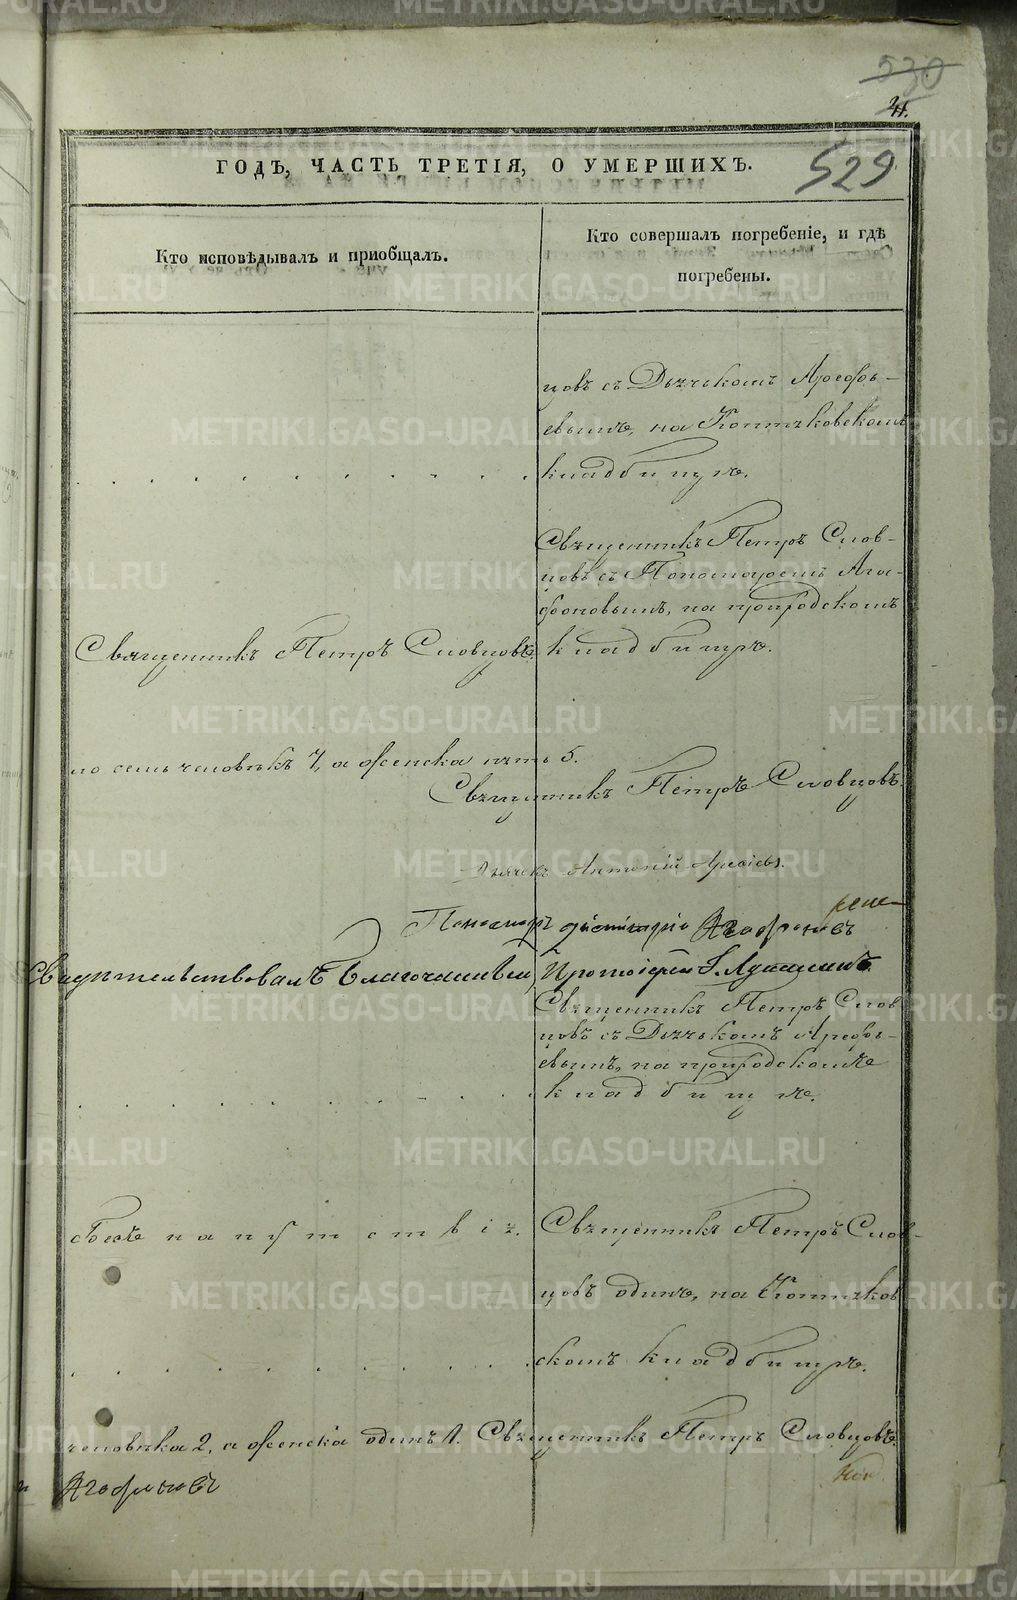 530
41.
529
ГОДЪ, ЧАСТЬ ТРЕТІЯ, О УМЕРШИХЪ.
Кто исповѣдывалъ и приобщалъ.
Кто совершалъ погребеніе, и гдѣ
погребены.
цовъ съ Дьячкомъ Арефь-
евымъ, на Коптяковскомъ
кладбищѣ.
Священникъ Петръ Слов-
цовъ съ Пономаремъ Ага-
фоновымъ, на приходскомъ
Священникъ Петръ Словцовъ. кладбищѣ.
ло семь человѣкъ 7, а женска пять 5.
Священникъ Петръ Словцовъ.
Дьячекъ Антоній Арефьевъ.
Пономарь Агафоновъ
Свидѣтельствовалъ Благочинный, Протоіерей
Священникъ Петръ Слов
цовъ съ Дьячкомъ Арефь-
евымъ, на приходскомъ
кладбищѣ.
Безъ напутствія. Священникъ Петръ Слов-
цовъ одинъ, на Коптяков
скомъ кладбищѣ.
человѣка 2, а женска одинъ 1. Священникъ Петръ Словцовъ.
Агафоновъ
METRIKI.GASO-URAL.RU